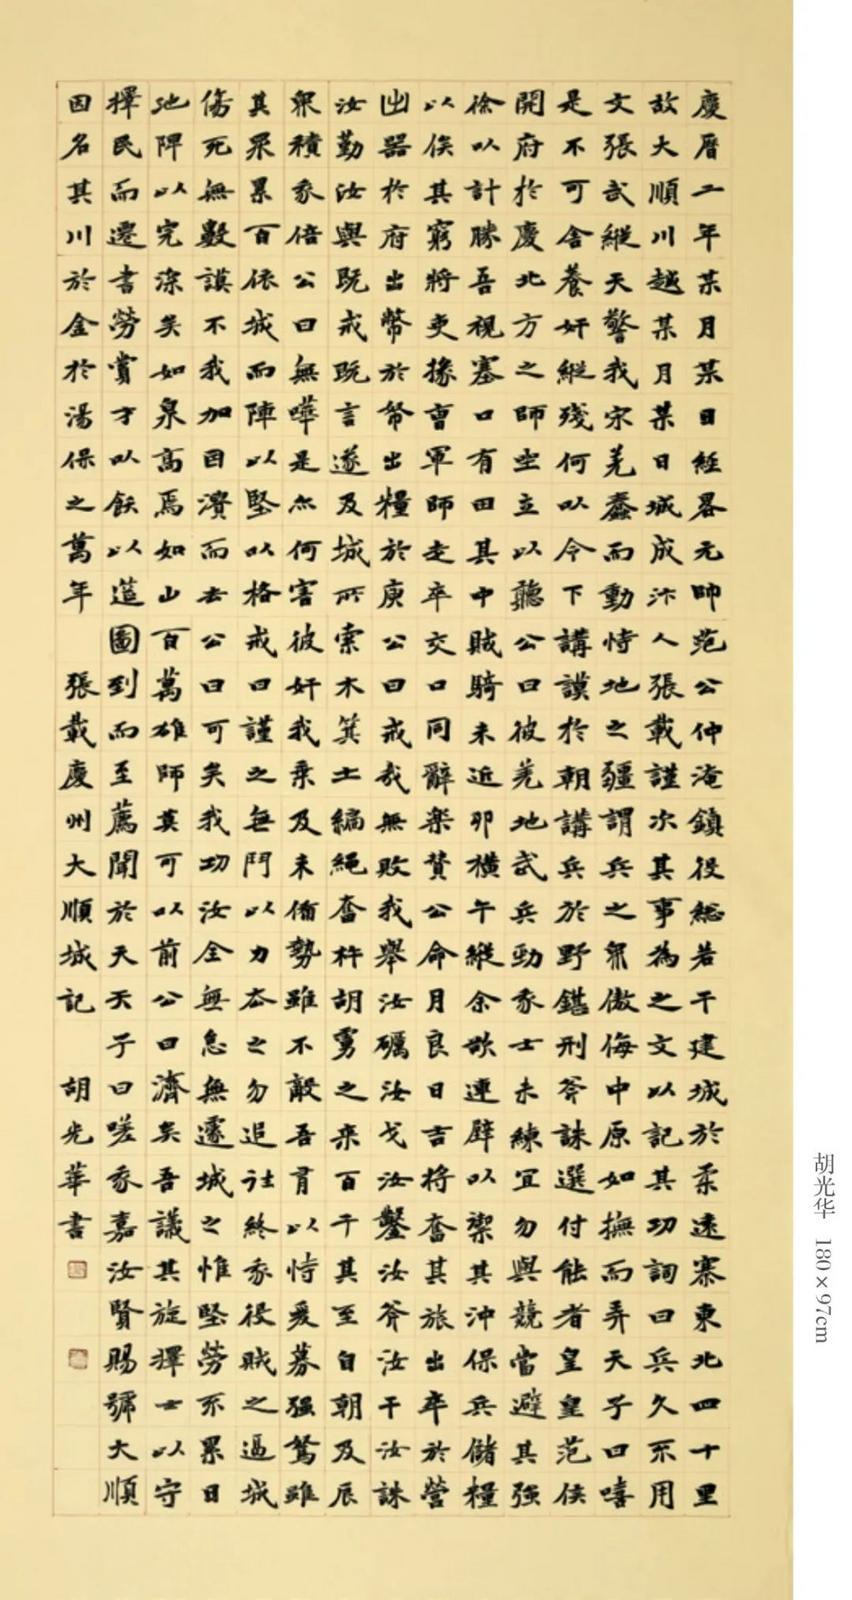 慶曆二年某月某日經畧元帥范公仲淹鎮役總若干建城於柔遠寨東北四十里
故大順川越某月某日城成汴人張載謹次其事為之文以記其功詞曰兵久不用
文張武縱天警我宋羌蠢而動恃地之疆謂兵之衆傲侮中原如撫而弄天子曰嘻
是不可舍養奸縱殘何以令下講謨於朝講兵於野鍖刑斧誅選付能者皇皇范侯
開府於慶北方之師坐立以聽公曰彼羌地武兵勁我士未練宜勿與競當避其強
徐以計勝吾視塞口有田其中賊騎未近卯橫午縱余欲連壁以禦其沖保兵儲糧
以俟其窮將吏掾曹軍師走卒交口同辭樂贊公命月良日吉將奮其旅出卒於營
出器於府出幣於帑出糧於庾公曰戒哉無敗我舉汝礪汝戈汝鑿汝斧汝干汝誅
汝勤汝與既戒既言遂及城所索木箕土編繩奮杵胡虜之來百千其至自朝及辰
衆積我倍公曰無嘩是亦何害彼奸我乘及未偹勢雖不敵吾有以恃爰募强弩雖
其衆累百依城而陣以堅以格戒曰謹之無鬥以力去之勿追往終我役賊之逼城
傷死無數謨不我加因潰而去公曰可矣我功汝全無怠無遽城之惟堅勞不累日
池陴以完深矣如泉高焉如山百萬雄師莫可以前公曰濟矣吾議其旋擇士以守
擇民而遷書勞賞才以飫以筵圖到而至薦聞於天天子曰嗟我嘉汝賢賜號大順
因名其川於金於湯保之萬年 張載慶州大順城記 胡光華書
胡光华 180×97cm